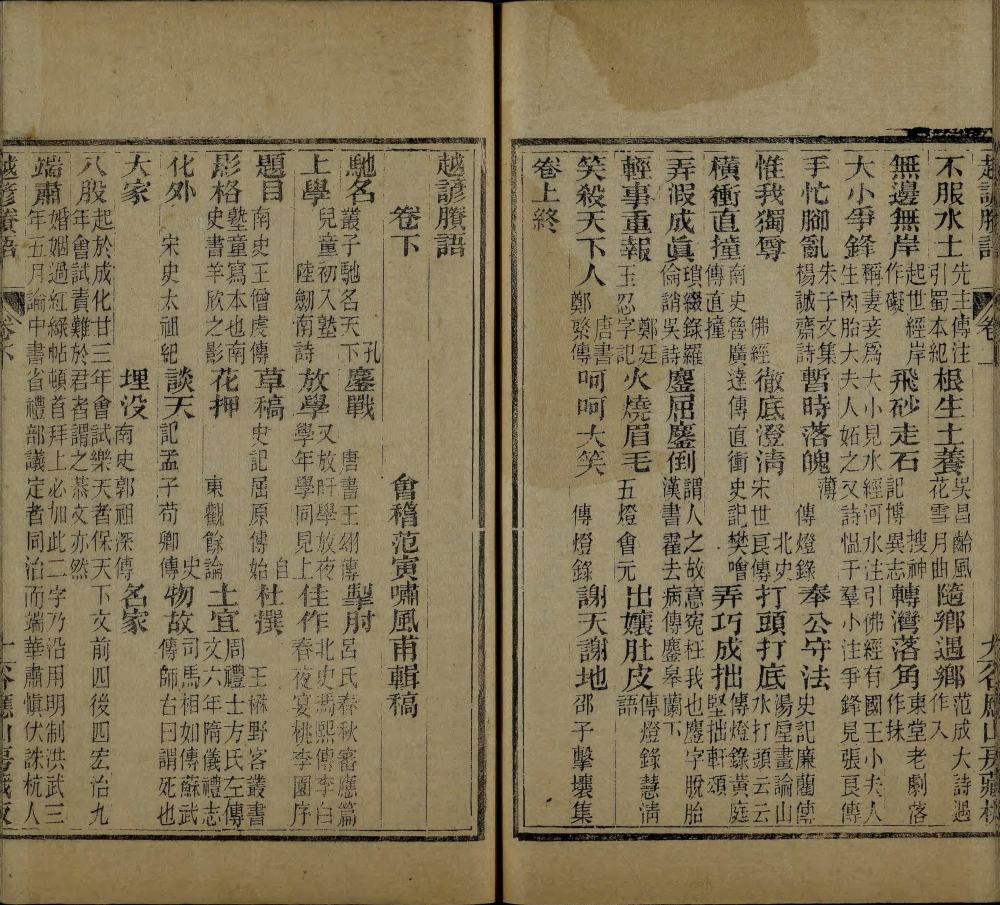 越諺賸語 卷上
不服水土 先主傳注引蜀本紀 根生土養 吳昌齡風花雪月曲 隨鄉遇鄉 范成大詩遇作入
無邊無岸 起世經岸作礙 飛砂走石 搜神記博異志 轉灣落角 東堂老劇落作抹
大小爭鋒 稱妻妾爲大小見水經河水注引佛經有國王小夫人生肉胎大夫人妬之又詩慍于羣小注爭鋒見張良傳
手忙腳亂 朱子文集楊誠齋詩 暫時落魄 傳燈錄 奉公守法 史記廉藺傳
惟我獨尊 佛經 徹底澄清 北史宋世良傳 打頭打底 湯垕畫論山水打頭云云
橫衝直撞 南史魯廣達傳直衝史記樊噲傳直撞 弄巧成拙 傳燈錄黃庭堅拙軒頌
弄假成眞 瑣綴錄羅倫誚吳詩 鏖屈鏖倒 漢書霍去病傳鏖皋蘭下謂人之故意寃枉我也鏖字脫胎
輕事重報 鄭廷玉忍字記 火燒眉毛 五燈會元 出孃肚皮 傳燈錄慧淸語
笑殺天下人 唐書鄭綮傳 呵呵大笑 傳燈錄 謝天謝地 邵子擊壤集
卷上終
越諺賸語
卷下 會稽范寅嘯風甫輯稿
馳名 孔叢子馳名天下 鏖戰 唐書王翃傳 掣肘 呂氏春秋審應篇
上學 兒童初入塾 陸劒南詩 放學 又放旰學放夜學年學同見上 佳作 北史馮熙傳李白春夜宴桃李園序
題目 南史王僧虔傳 草稿 史記屈原傳 杜撰 始自王楙野客叢書
影格 塾童寫本也南史書羊欣之影 花押 東觀餘論 土宜 周禮土方氏左傳文六年隋儀禮志
化外 宋史太祖紀 談天 史記孟子荀卿傳 物故 司馬相如傳蘇武傳師古曰謂死也
大家 埋没 南史郭祖深傳 名家
八股 起於成化廿三年會試樂天者保天下文前四後四宏治九年會試責難於君者謂之恭文亦然
端肅 婚姻過紅綠帖頓首拜上必加此二字乃沿用明制洪武三年五月論中書省禮部議定者同治而端華肅愼伏誅杭人
越諺賸語 卷下